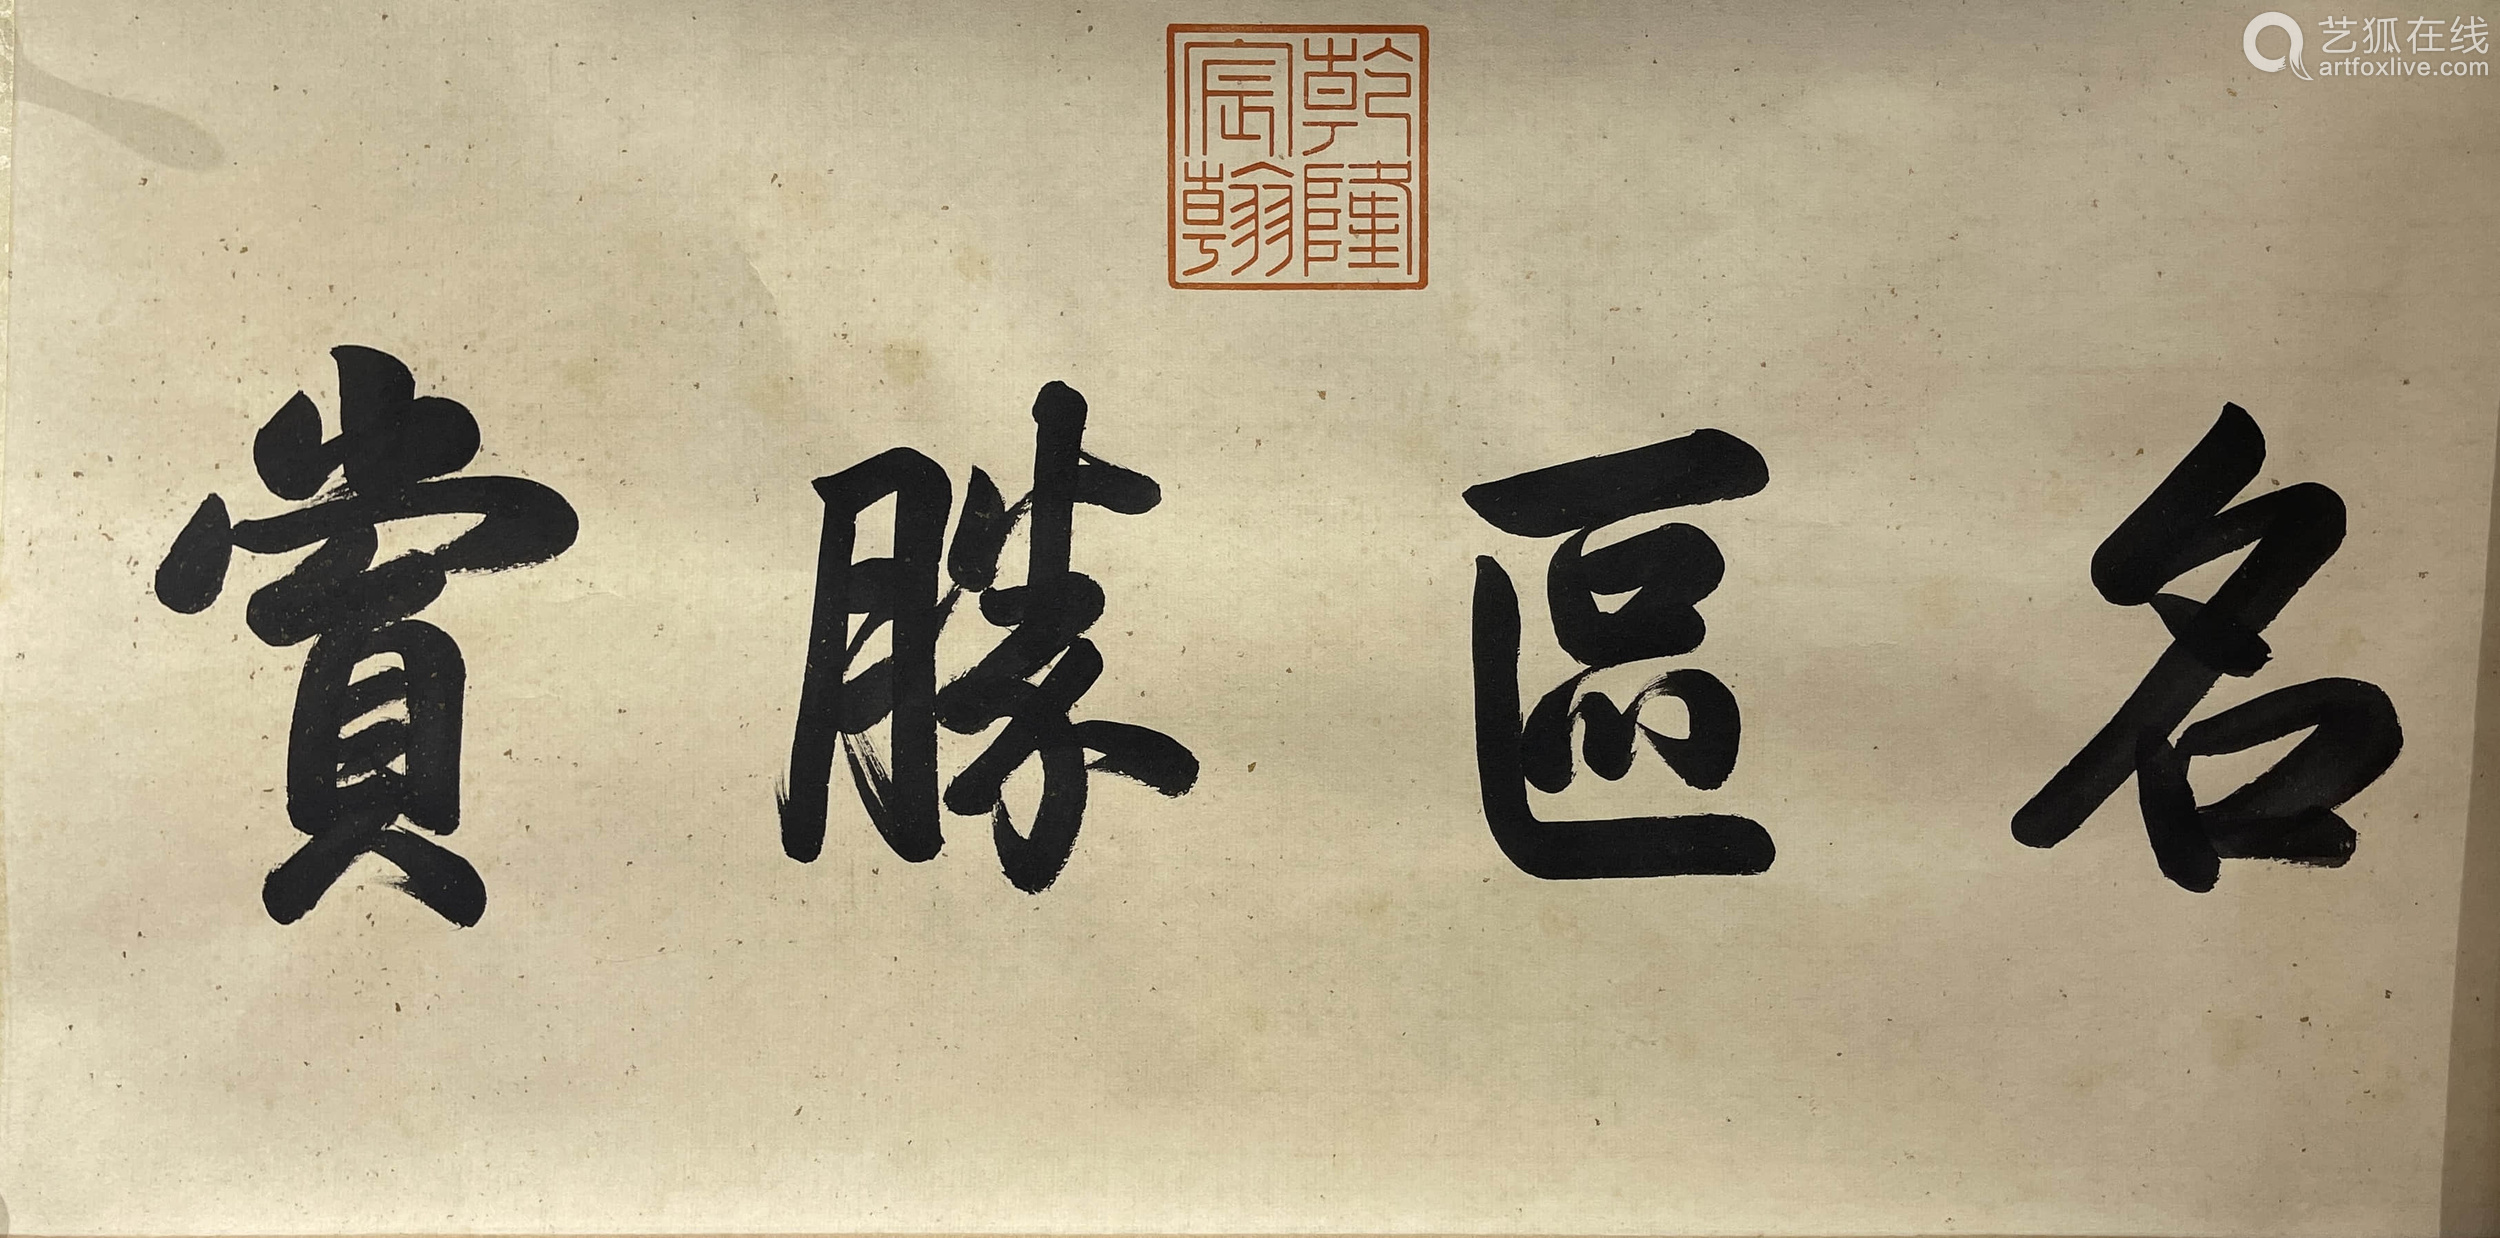 艺狐在线
artfoxlive.com
乾隆宸翰
名區勝賞